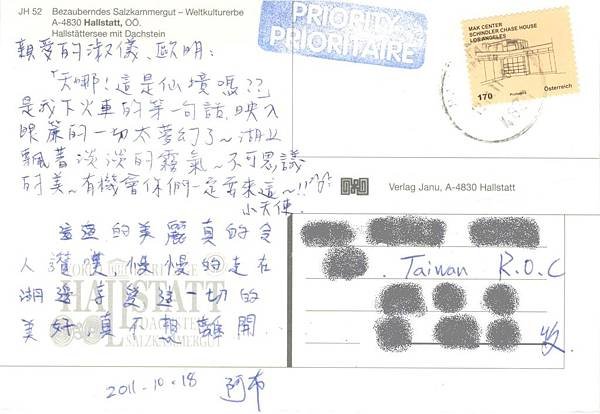 JH 52 Bezauberndes Salzkammergut – Weltkulturerbe
A-4830 Hallstatt, OÖ.
Hallstättersee mit Dachstein
PRIORITY
PRIORITAIRE
MAK CENTER
SCHINDLER CHASE HOUSE
LOS ANGELES
170
Österreich
親愛的淑儀、歐明:
「天哪!這是仙境嗎??
是我下火車的第一句話,映入
眼簾的一切太夢幻了~湖上
飄著淡淡的霧氣~不可思議
的美~有機會你們一定要來這~!!
小天使.
Verlag Janu, A-4830 Hallstatt
這邊的美麗真的令
人讚嘆,慢慢的走在
湖邊享受這一切的
美好,真不想離開.
HALLSTATT
DACHSTEIN
SALZKAMMERGUT
Taiwan R.O.C
收.
2011.10.18 阿布